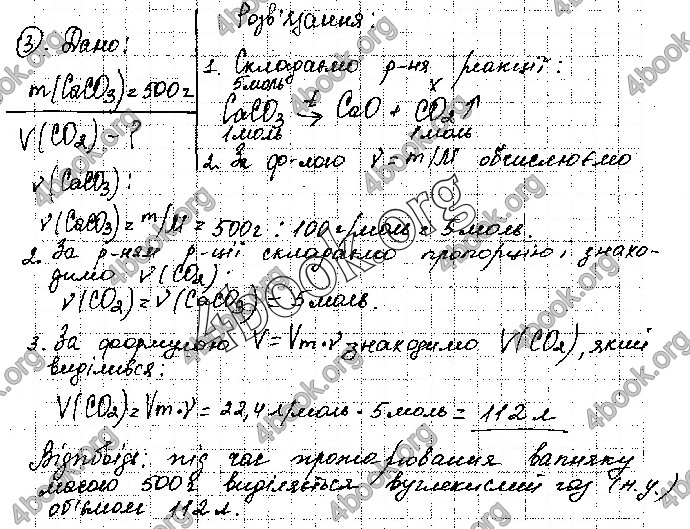 ③. Дано:
m(CaCO₃)=500г
V(CO₂) - ?
Розв'язання:
1. Складаємо р-ня реакції:
5моль x
CaCO₃ →t CaO + CO₂↑
1моль 1моль
2. За ф-лою ν=m/M обчислюємо
ν(CaCO₃):
ν(CaCO₃)=m/M = 500г : 100 г/моль = 5моль.
2. За р-ням р-ції складаємо пропорцію і знахо-
димо ν(CO₂):
ν(CO₂)=ν(CaCO₃)=5моль.
3. За формулою V=Vm·ν знаходимо V(CO₂), який
виділився:
V(CO₂)=Vm·ν = 22,4л/моль · 5моль = 112л
Відповідь: під час прожарювання вапняку
масою 500г виділяється вуглекислий газ (н.у.)
об'ємом 112л.
4book.org